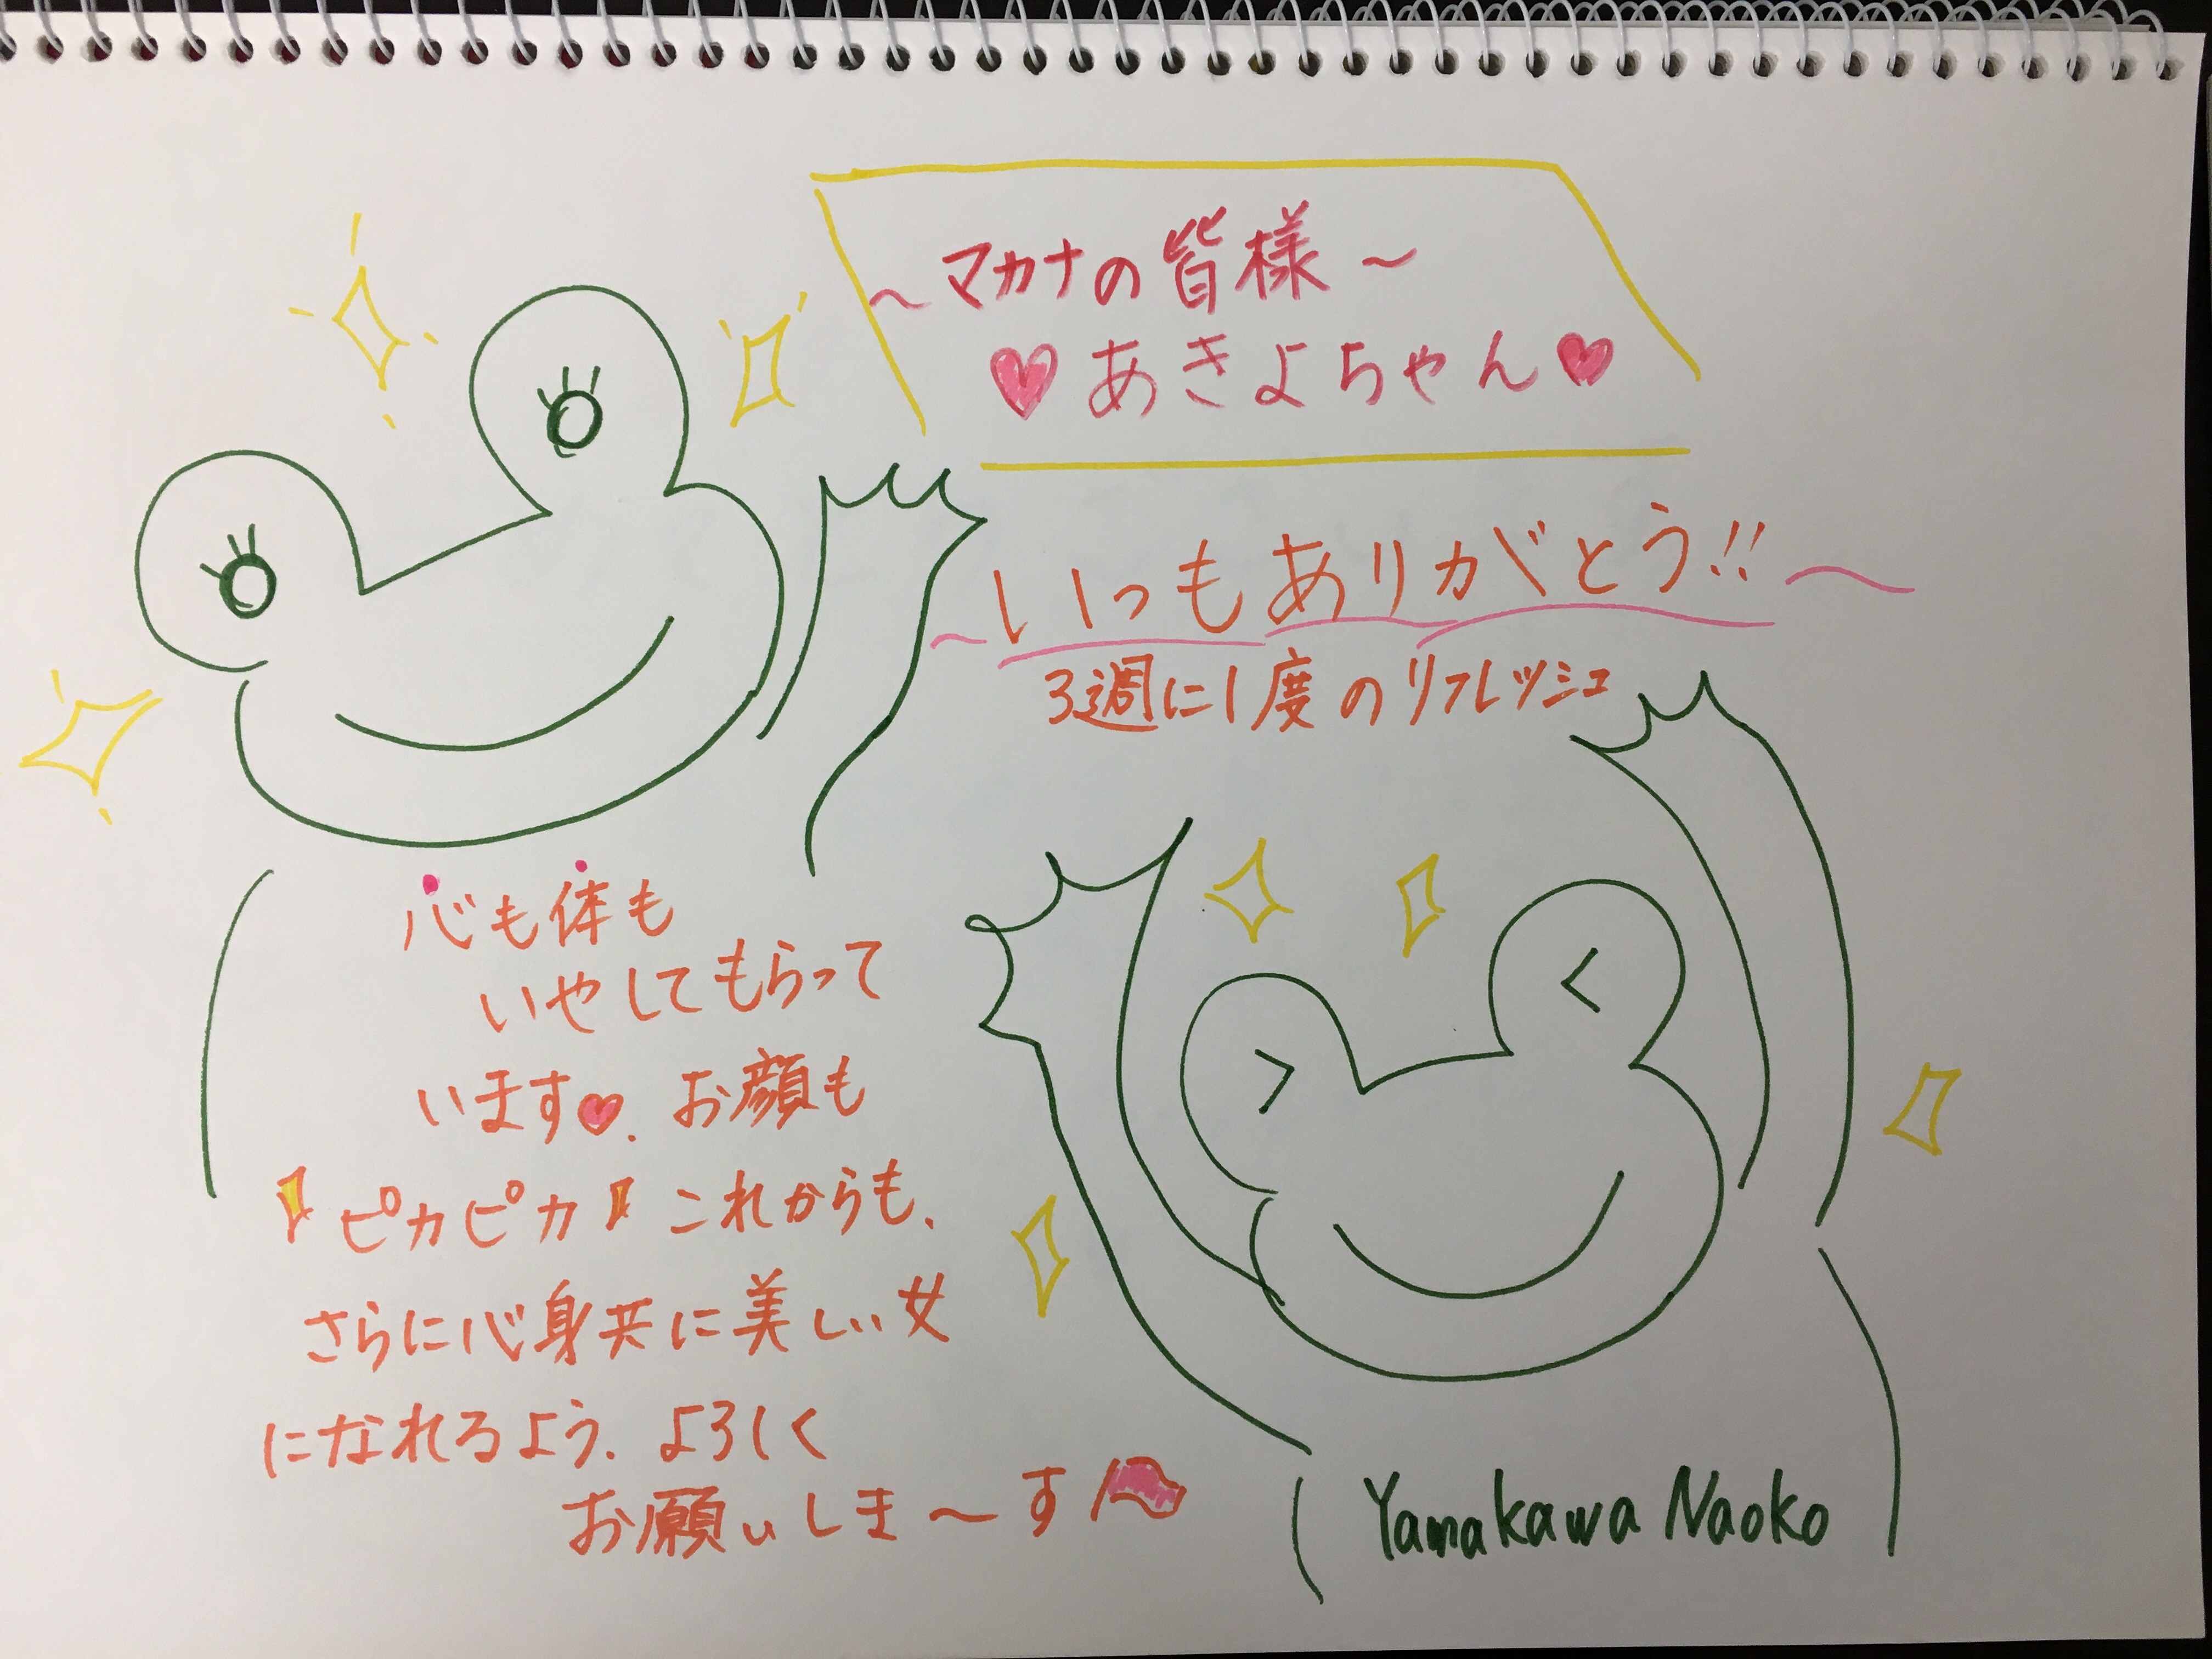 〜マカナの皆様〜
♥あきよちゃん♥
〜いつもありがとう!!〜
3週に1度のリフレッシュ
心も体も
いやしてもらって
います♥. お顔も
ピカピカ これからも、
さらに心身共に美しい女
になれるよう. よろしく
お願いしま〜す
Yamakawa Naoko